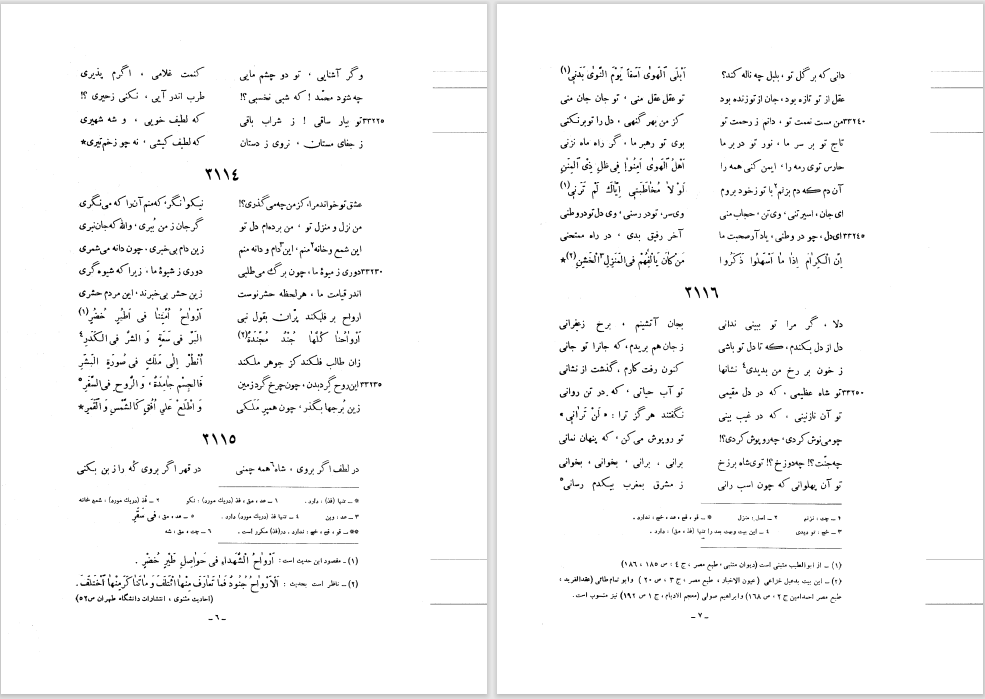 وگر آشنایی ، تو دو چشم مایی کنمت غلامی ، اگرم پذیری
چه شود محمد ! که شبی نخسبی ؟! طرب اندر آیی ، نکنی زحیری ؟!
۳۳۲۲۵ تو بیار ساقی ! ز شراب باقی که لطیف خویی ، و شه شهیری
ز جفای مستان ، نروی ز دستان که لطیف کیشی ، نه چو زخم تیری*
۳۱۱٤
عشق تو خواند مرا، کز من چه می گذری؟! نیکو نگر۱ که منم آن را که می نگری
من نزل و منزل تو ، من برده ام دل تو گر جان ز من ببری ، والله که جان نبری
این شمع و خانه۲ منم ، این۳ دام و دانه منم زین دام بی خبری ، چون دانه می شمری
۳۳۲۳۰ دوری ز میوهٔ ما، چون برگ می طلبی دوری ز شیوهٔ ما ، زیرا که شیوه گری
اندر قیامت ما ، هر لحظه حشر نوست زین حشر بی خبرند، این مردم حشری
ارواح بر فلکند پران بقول نبی أَرْواحُ أُمَّتِنا فی أَطْیُرٍ خُضُرٍ (۱)
أَرْواحُنا کُلُّها جُنْدٌ مُجَنَّدَةٌ (۲) اَلْبَرُّ فی سَعَةٍ وَ الشَّرُّ فی الکَدَرِ٤
زان طالب فلکند کز جوهر ملکند اُنْظُرْ اِلی مَلَکٍ فی صُورَةِ الْبَشَرِ
۳۳۲۳۵ این روح گرد بدن، چون چرخ گرد زمین فَالجِسْمُ جامِدَةٌ ، وَ الرُّوحُ فی السَّفَرِ٥
زین برجها بگذر، چون همپر ملکی وَ اطْلَعْ عَلی اُفُقٍ کَالشَّمْسِ وَ الْقَمَرِ*
۳۱۱٥
در لطف اگر بروی ، شاه٦ همه چمنی در قهر اگر بروی که را ز بن بکنی
* ــ تنها (فذ) ، دارد . ۱ ــ عد، مق، فذ (دریک مورد) : نکو ۲ ــ فذ (دریک مورد) : شمع خانه
۳ ــ عد : وین ٤ ــ تنها فذ (دریک مورد) دارد . ٥ ــ عد ، مق : فی سَقَرِ
** ــ قو ، قح ، عد ، خج : ندارد . در (فذ) مکرر است . ٦ ــ چت ، مق : شه
(۱) ــ مقصود این حدیث است : أَرْواحُ الشُّهَداءِ فی حَواصِلِ طَیْرٍ خُضْرٍ .
(۲) ــ ناظر است بحدیث : اَلْاَرْواحُ جُنُودٌ مُجَنَّدَةٌ فَما تَعارَفَ مِنْها ائْتَلَفَ وَ ما تَناکَرَ مِنْها اخْتَلَفَ .
(احادیث مثنوی ، انتشارات دانشگاه طهران ص ٥۲)
ــ ٦ ــ
دانی که بر گل تو ، بلبل چه ناله کند ؟ أَبْلَی الْهَوی أَسَفاً یَوْمَ النَّوی بَدَنی (۱)
عقل از تو تازه بود ، جان از تو زنده بود تو عقل عقل منی ، تو جان جان منی
۳۳۲٤۰ من مست نعمت تو ، دانم ز رحمت تو کز من بهر گنهی ، دل را تو بر نکنی
تاج تو بر سر ما ، نور تو در بر ما بوی تو رهبر ما ، گر راه ما نزنی
حارس توی رمه را ، ایمن کنی همه را اَهْلُ الْهَوی اَمِنُوا فی ظِلِّ ذِی الْمِنَنِ
آن دم که دم بزنم۲ با تو ز خود بروم لَوْ لا مُخاطَبَتی اِیّاکَ لَمْ تَرَنی (۱)
ای جان ، اسیر تنی ، وی تن ، حجاب منی وی سر، تو در رسنی ، وی دل تو در وطنی
۳۳۲٤٥ ای دل، چو در وطنی ، یاد آر صحبت ما آخر رفیق بدی ، در راه ممتحنی
اِنَّ الْکِرامَ اِذا ما اَسْهَلُوا ذَکَرُوا مَنْ کانَ یَأْلَفُهُمْ فی الْمَنْزِلِ۳ الْخَشِنِ (۲)*
۳۱۱٦
دلا ، گر مرا تو ببینی ندانی بجان آتشینم ، برخ زعفرانی
دل از دل بکندم ، که تا دل تو باشی ز جان هم بریدم، که جان را تو جانی
ز خون بر رخ من بدیدی٤ نشانها کنون رفت کارم ، گذشت از نشانی
۳۳۲٥۰ تو شاه عظیمی ، که در دل مقیمی تو آب حیاتی ، که در تن روانی
تو آن نازنینی ، که در غیب بینی نگفتند هرگز ترا : « لَنْ تَرانی »
چو می نوش کردی ، چه روپوش کردی ؟! تو روپوش می کن ، که پنهان نمانی
چه جنت؟! چه دوزخ؟! توی شاه برزخ برانی ، برانی ، بخوانی ، بخوانی
تو آن پهلوانی که چون اسب رانی ز مشرق بمغرب بیکدم رسانی٥
۲ ــ اصل : منزل * ــ قو ، قح ، عد ، خج : ندارد .
۳ ــ خج : تو دیدی ٤ ــ این بیت وبیت بعد را تنها (فذ ، مق) ، دارد :
(۱) ــ از ابوالطیب متنبی است (دیوان متنبی ، طبع مصر ، ج ٤ ؛ ص ۱۸٥ ، ۱۸٦)
(۲) ــ این بیت بدعبل خزاعی (عیون الاخبار ، طبع مصر ، ج ۳ ، ص ۲۰) وابو تمام طائی (عقدالفرید ،
طبع مصر احمدامین ج ۲ ، ص ۱٦۸) وابراهیم صولی (معجم الادباء ، ج ۱ ص ۱۹۲) نیز منسوب است .
ــ ۷ ــ